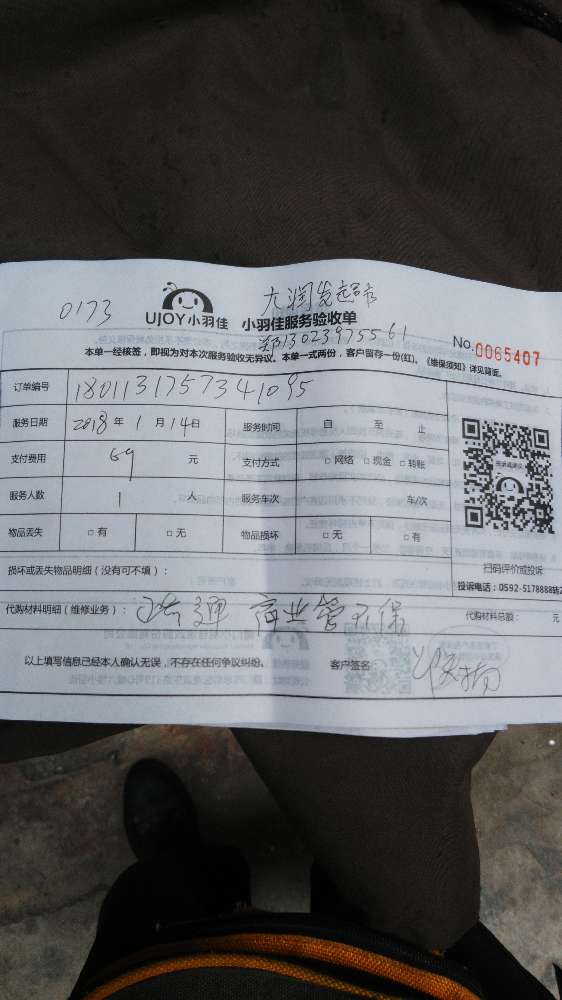 大润发超市
0173
UJOY小羽佳 小羽佳服务验收单
郑13023975561
No.0065407
本单一经核签，即视为对本次服务验收无异议。本单一式两份，客户留存一份(红)。《维保须知》详见背面。
订单编号 1801131757341095
服务日期 2018年1月14日 服务时间 自 至 止
支付费用 69 元 支付方式 □网络 □现金 □转账
服务人数 1 人 服务车次 车/次
物品丢失 □有 □无 物品损坏 □无 □有
扫码评价或投诉
损坏或丢失物品明细（没有可不填）：
投诉电话：0592-5178888转2
代购材料明细（维修业务）： 疏通 商业管不保 代购材料总额： 元
以上填写信息已经本人确认无误，不存在任何争议纠纷。 客户签名：